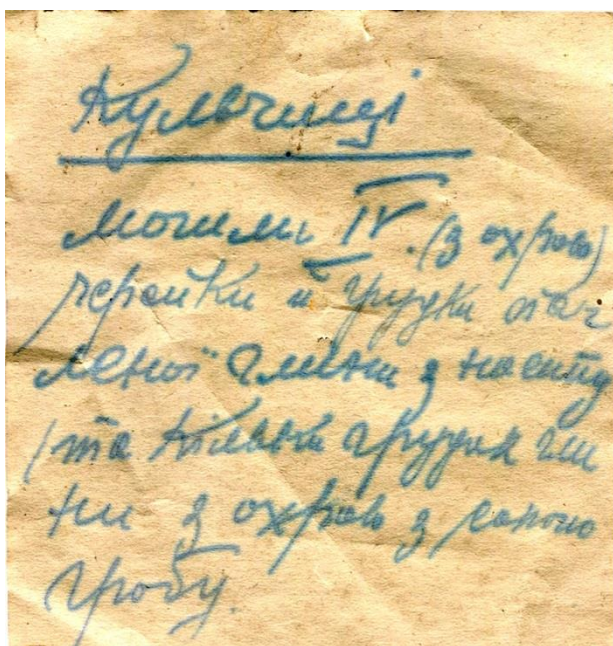 Кульчиці
могили IV. (з охрою)
черепки и грудки пач
леної глини з насипу
(та кілька грудок гли
ни з охрою з самого
гробу.